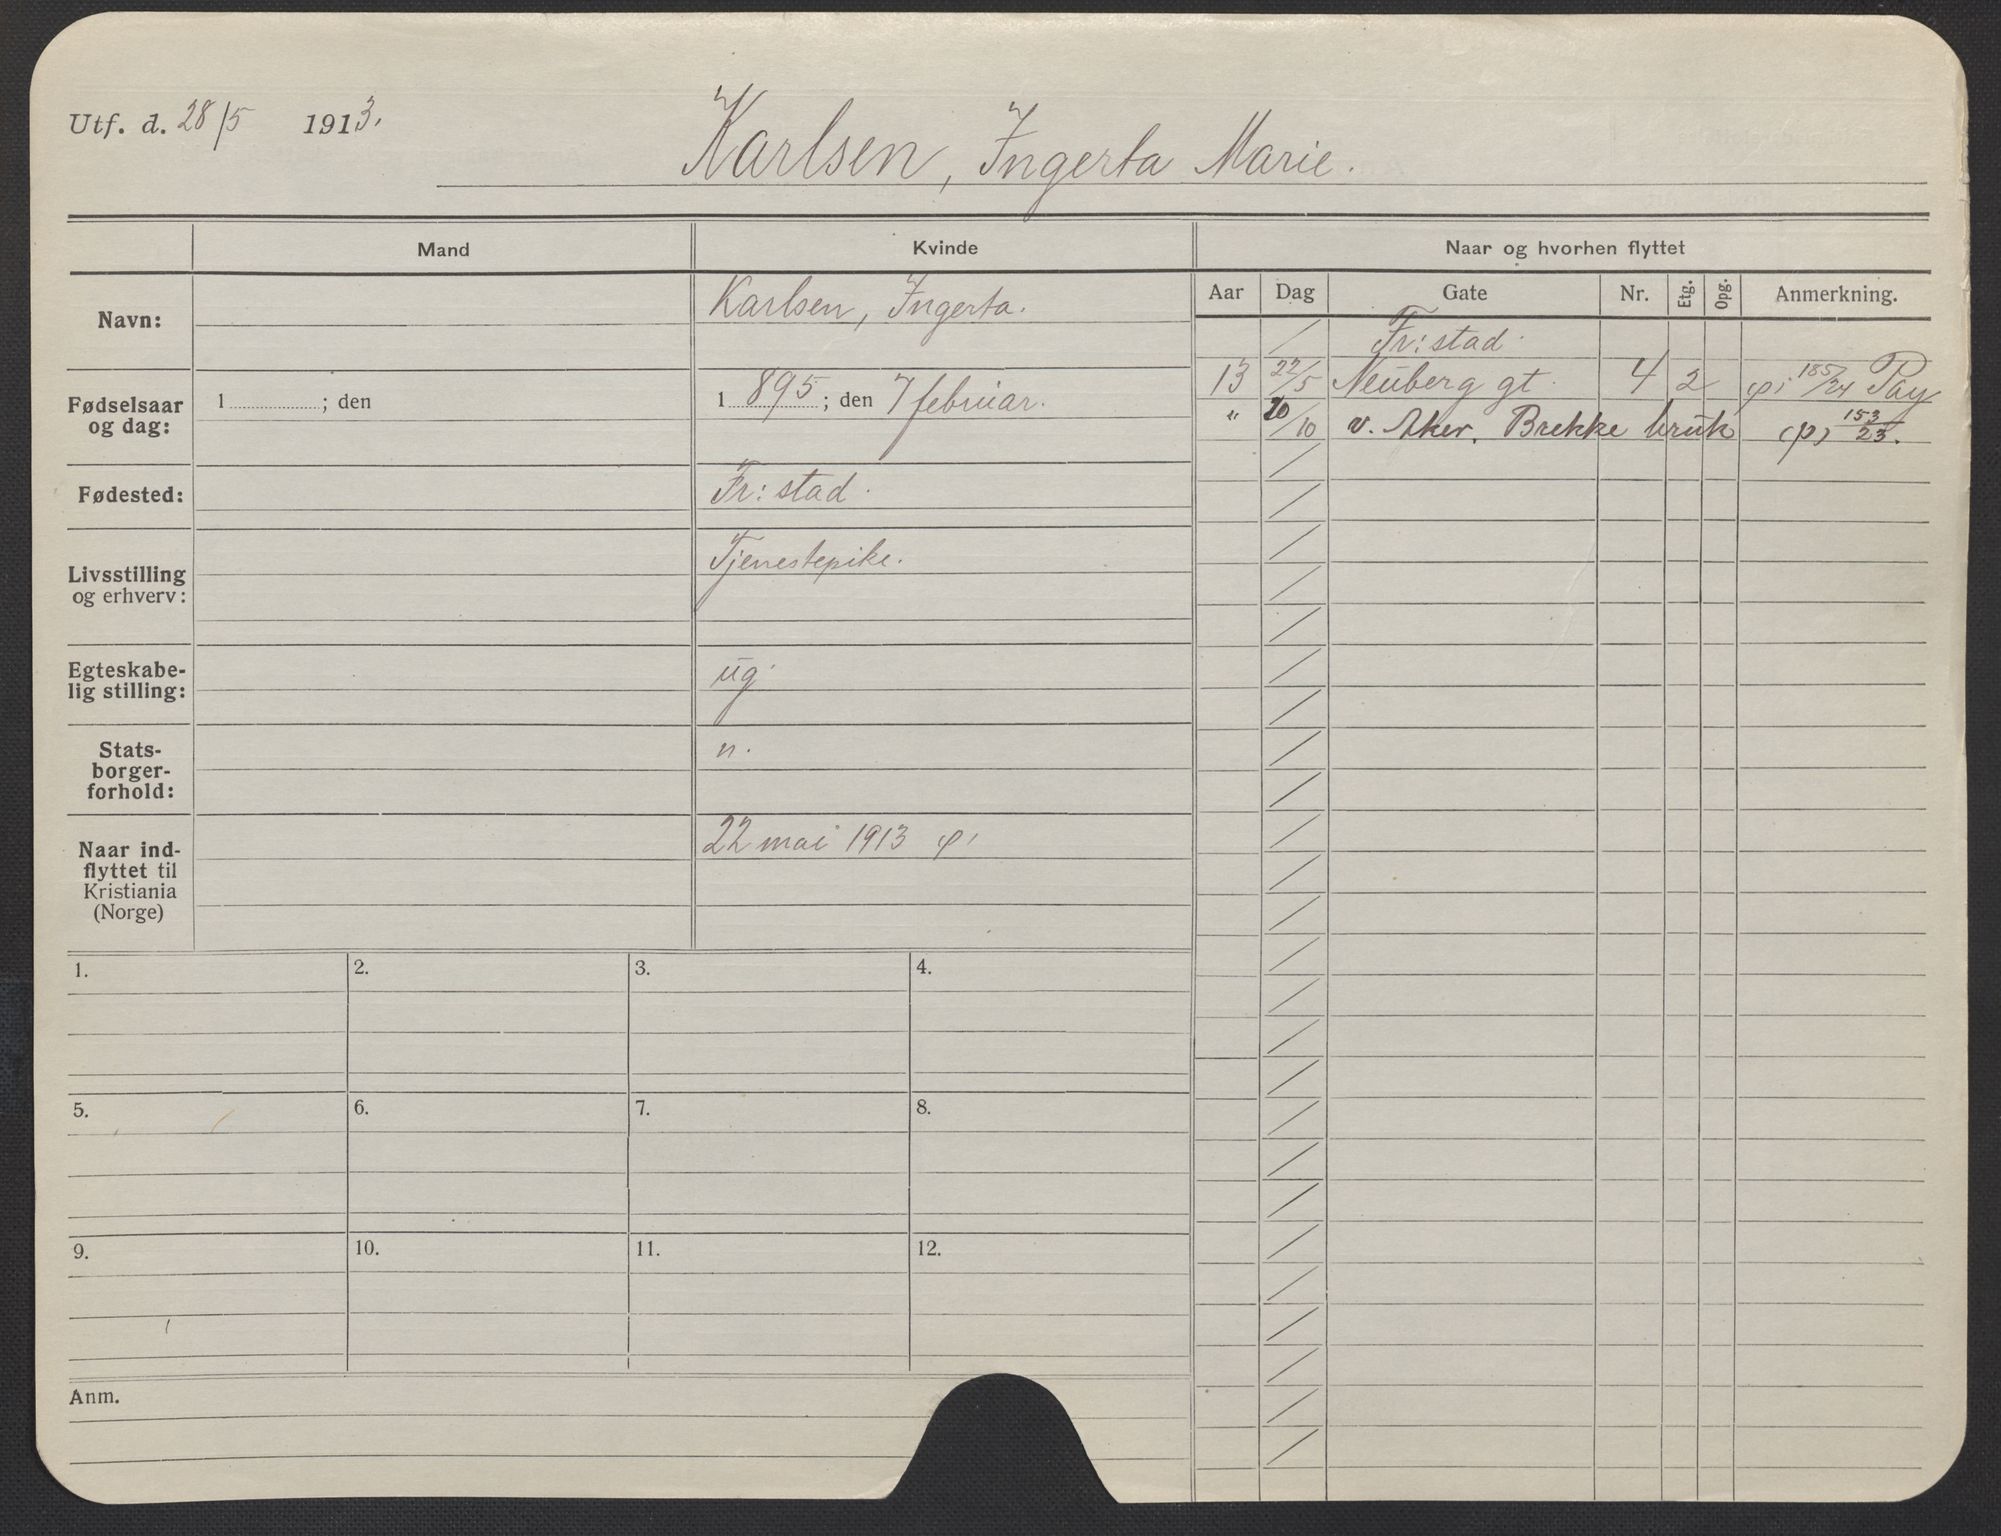 Utf. d. 28/5 1913.
Karlsen, Ingerta Marie.
Mand
Kvinde
Navn:
Karlsen, Ingerta.
Fødselsaar og dag:
1 ; den
1 895 ; den 7 februar.
Fødested:
Fr: stad.
Livsstilling og erhverv:
Tjenestepike.
Egteskabe-
lig stilling:
ug
Stats-
borger-
forhold:
n.
Naar ind-
flyttet til
Kristiania
(Norge)
22 mai 1913
1.
2.
3.
4.
5.
6.
7.
8.
9.
10.
11.
12.
Anm.
Naar og hvorhen flyttet
Aar Dag Gate Nr. Etg. Opg. Anmerkning.
Fr: stad.
13 22/5 Neuberg gt. 4 2 185/24
" 20/10 v. Aker, Brekke bruk 153/23.